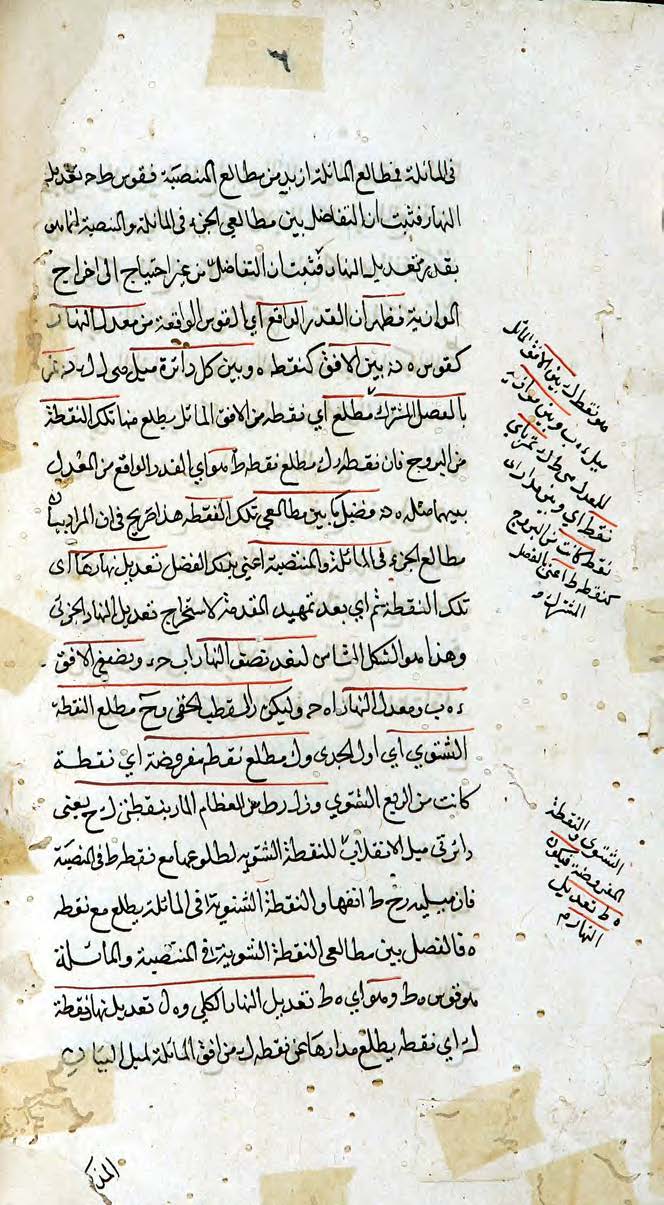 ٦
فى المائلة فمطالع المائلة ازيد من مطالع المنتصبة فقوس ط ح تعديل
النهار فثبت ان التفاضل بين مطالعى الجزء فى المائلة والمنتصبة انما هو
بقدر تعديل النهار فثبت ان التفاضل من غير احتياج الى اخراج
الموازية فظهر ان القدر الواقع اى القوس الواقعة من معدل النهار
كقوس ه د بين الافق كنقطه ه وبين كل دائرة ميل د تمر
بالفصل المشترك مطلع اى نقطه من الافق المائل يطلع منها تلك النقطة
من البروج فان نقطه ك مطلع نقطه ط هو اى القدر الواقع من المعدل
بينهما مثل ه د فضل ما بين مطالعى تلك النقطه هذا صريح فى ان المراد بيان
مطالع الجزء فى المائلة والمنتصبة اعنى بذلك الفضل تعديل نهارها اى
تلك النقطة ثم اى بعد تمهيد المقدمة لاستخراج تعديل النهار الجزئى
وهذا هو الشكل الثامن لنعد نصف النهار ا ب ح ء ونصفى الافق
ء ه ب ومعدل النهار ا ه ح وليكن ر القطب الخفى و ح مطلع النقطة
الشتوى اى اول الجدى و ل مطلع نقطه مفروضة اى نقطة
كانت من الربع الشتوى و ر ل ر ط من العظام المار بنقطتى ل ح يعنى
دائرتى ميل الانقلاب للنقطة الشتويه لطلوعها مع نقطه ط فى المنتصبة
فان ميلية ر ح ط افقها والنقطة الشتوية فى المائلة يطلع مع نقطه
ه فالفصل بين مطالعى النقطة الشتوية فى المنتصبة والمائلة
هو قوس ه ط وهو اى ه ط تعديل النهار الكلى و ه ل تعديل نهار نقطة
ل اى نقطه يطلع مدارها عن نقطه ل من افق المائلة لمثل البيان
المذكور
هو نقطه ك بين الافق المائل
ميل ء ب وبين موازية
للمعدل ط ك تمر باى
نقطه اى وبين مدار اى
نقطه كانت من البروج
كنقطه ط اعنى بالفصل
المشترك و
الشتوى والنقطة
المفروضة فيكون
ه ط تعديل
النهار م